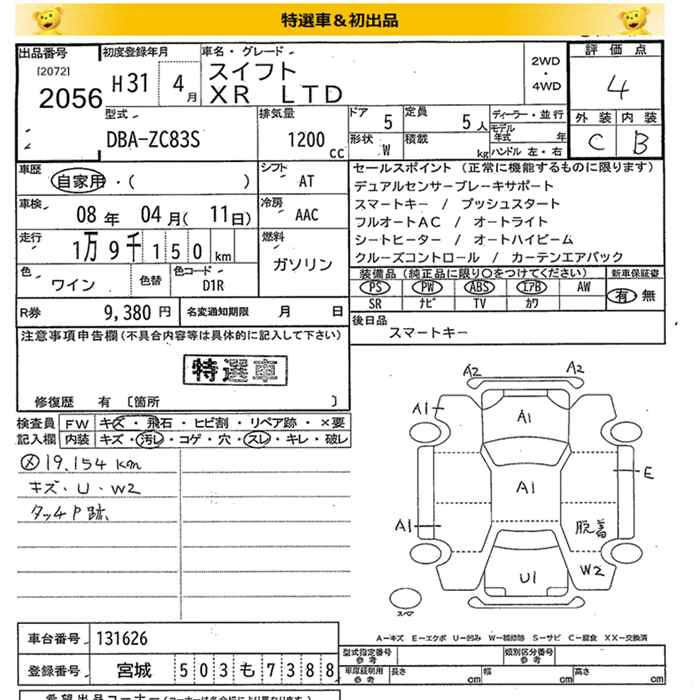 特選車＆初出品
出品番号
[2072]
2056
初度登録年月
H31 4月
車名・グレード
スイフト
XR LTD
2WD
・
4WD
評価点
4
外装 内装
C B
型式
DBA-ZC83S
排気量
1200 CC
ドア 5
定員 5人
形状 W
積載 kg
ディーラー・並行
モデル年式 年
ハンドル 左・右
車歴
自家用・( )
シフト AT
車検
08年 04月(11日)
冷房 AAC
走行
1万9千150km
燃料
ガソリン
色
ワイン
色替
色コード
D1R
R券 9,380円
名変通知期限 月 日
セールスポイント (正常に機能するものに限ります)
デュアルセンサーブレーキサポート
スマートキー / プッシュスタート
フルオートAC / オートライト
シートヒーター / オートハイビーム
クルーズコントロール / カーテンエアバック
装備品 (純正品に限り○をつけてください)
新車保証書
PS PW ABS エアB AW
有 無
SR ナビ TV カワ
後日品
スマートキー
注意事項申告欄(不具合内容等は具体的に記入して下さい)
特選車
修復歴 有 [箇所 ]
検査員
記入欄
FW キズ・飛石・ヒビ割・リペア跡・×要
内装 キズ・汚レ・コゲ・穴・スレ・キレ・破レ
㋱19.154km
キズ・U・W2
タッチP跡
A2 A2
A1 A1
E
A1
A1
脱着
W2
U1
スペア
A-キズ E-エクボ U-凹み W-補修跡 S-サビ C-腐食 XX-交換済
車台番号 131626
登録番号 宮城 503も7388
型式指定番号
参考
類別区分番号
参考
車庫証明用
参考
長さ cm 幅 cm 高さ cm
希望出品コーナー